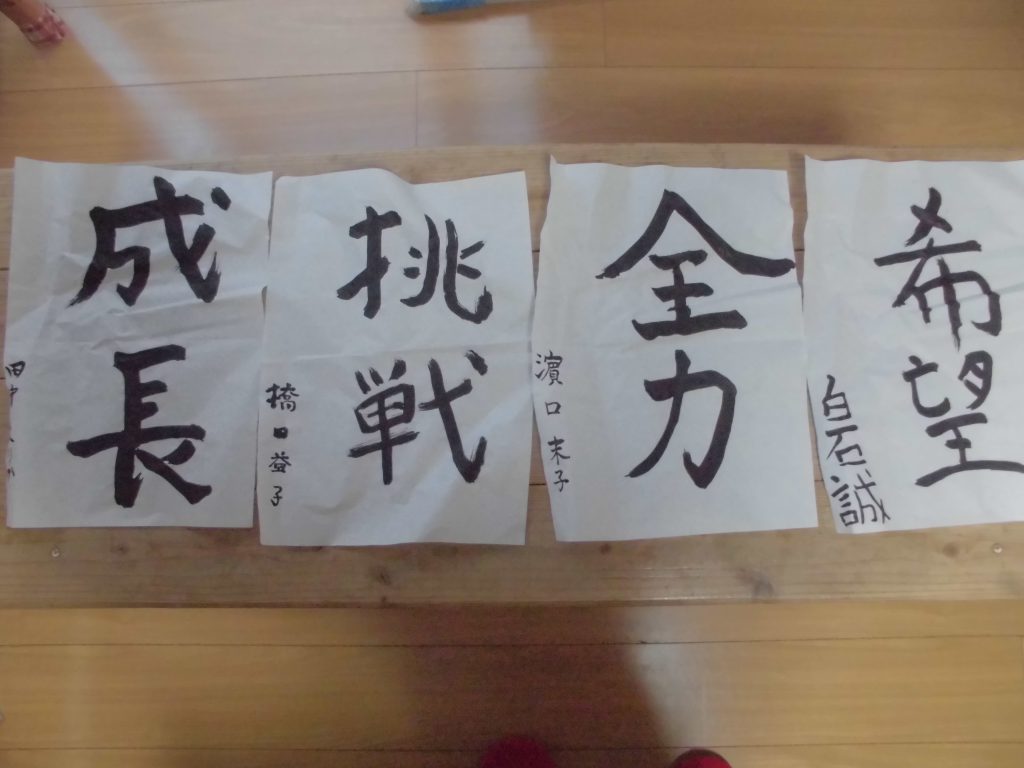 希望
白石誠
全力
濵口末子
挑戦
橋田益子
成長
田中